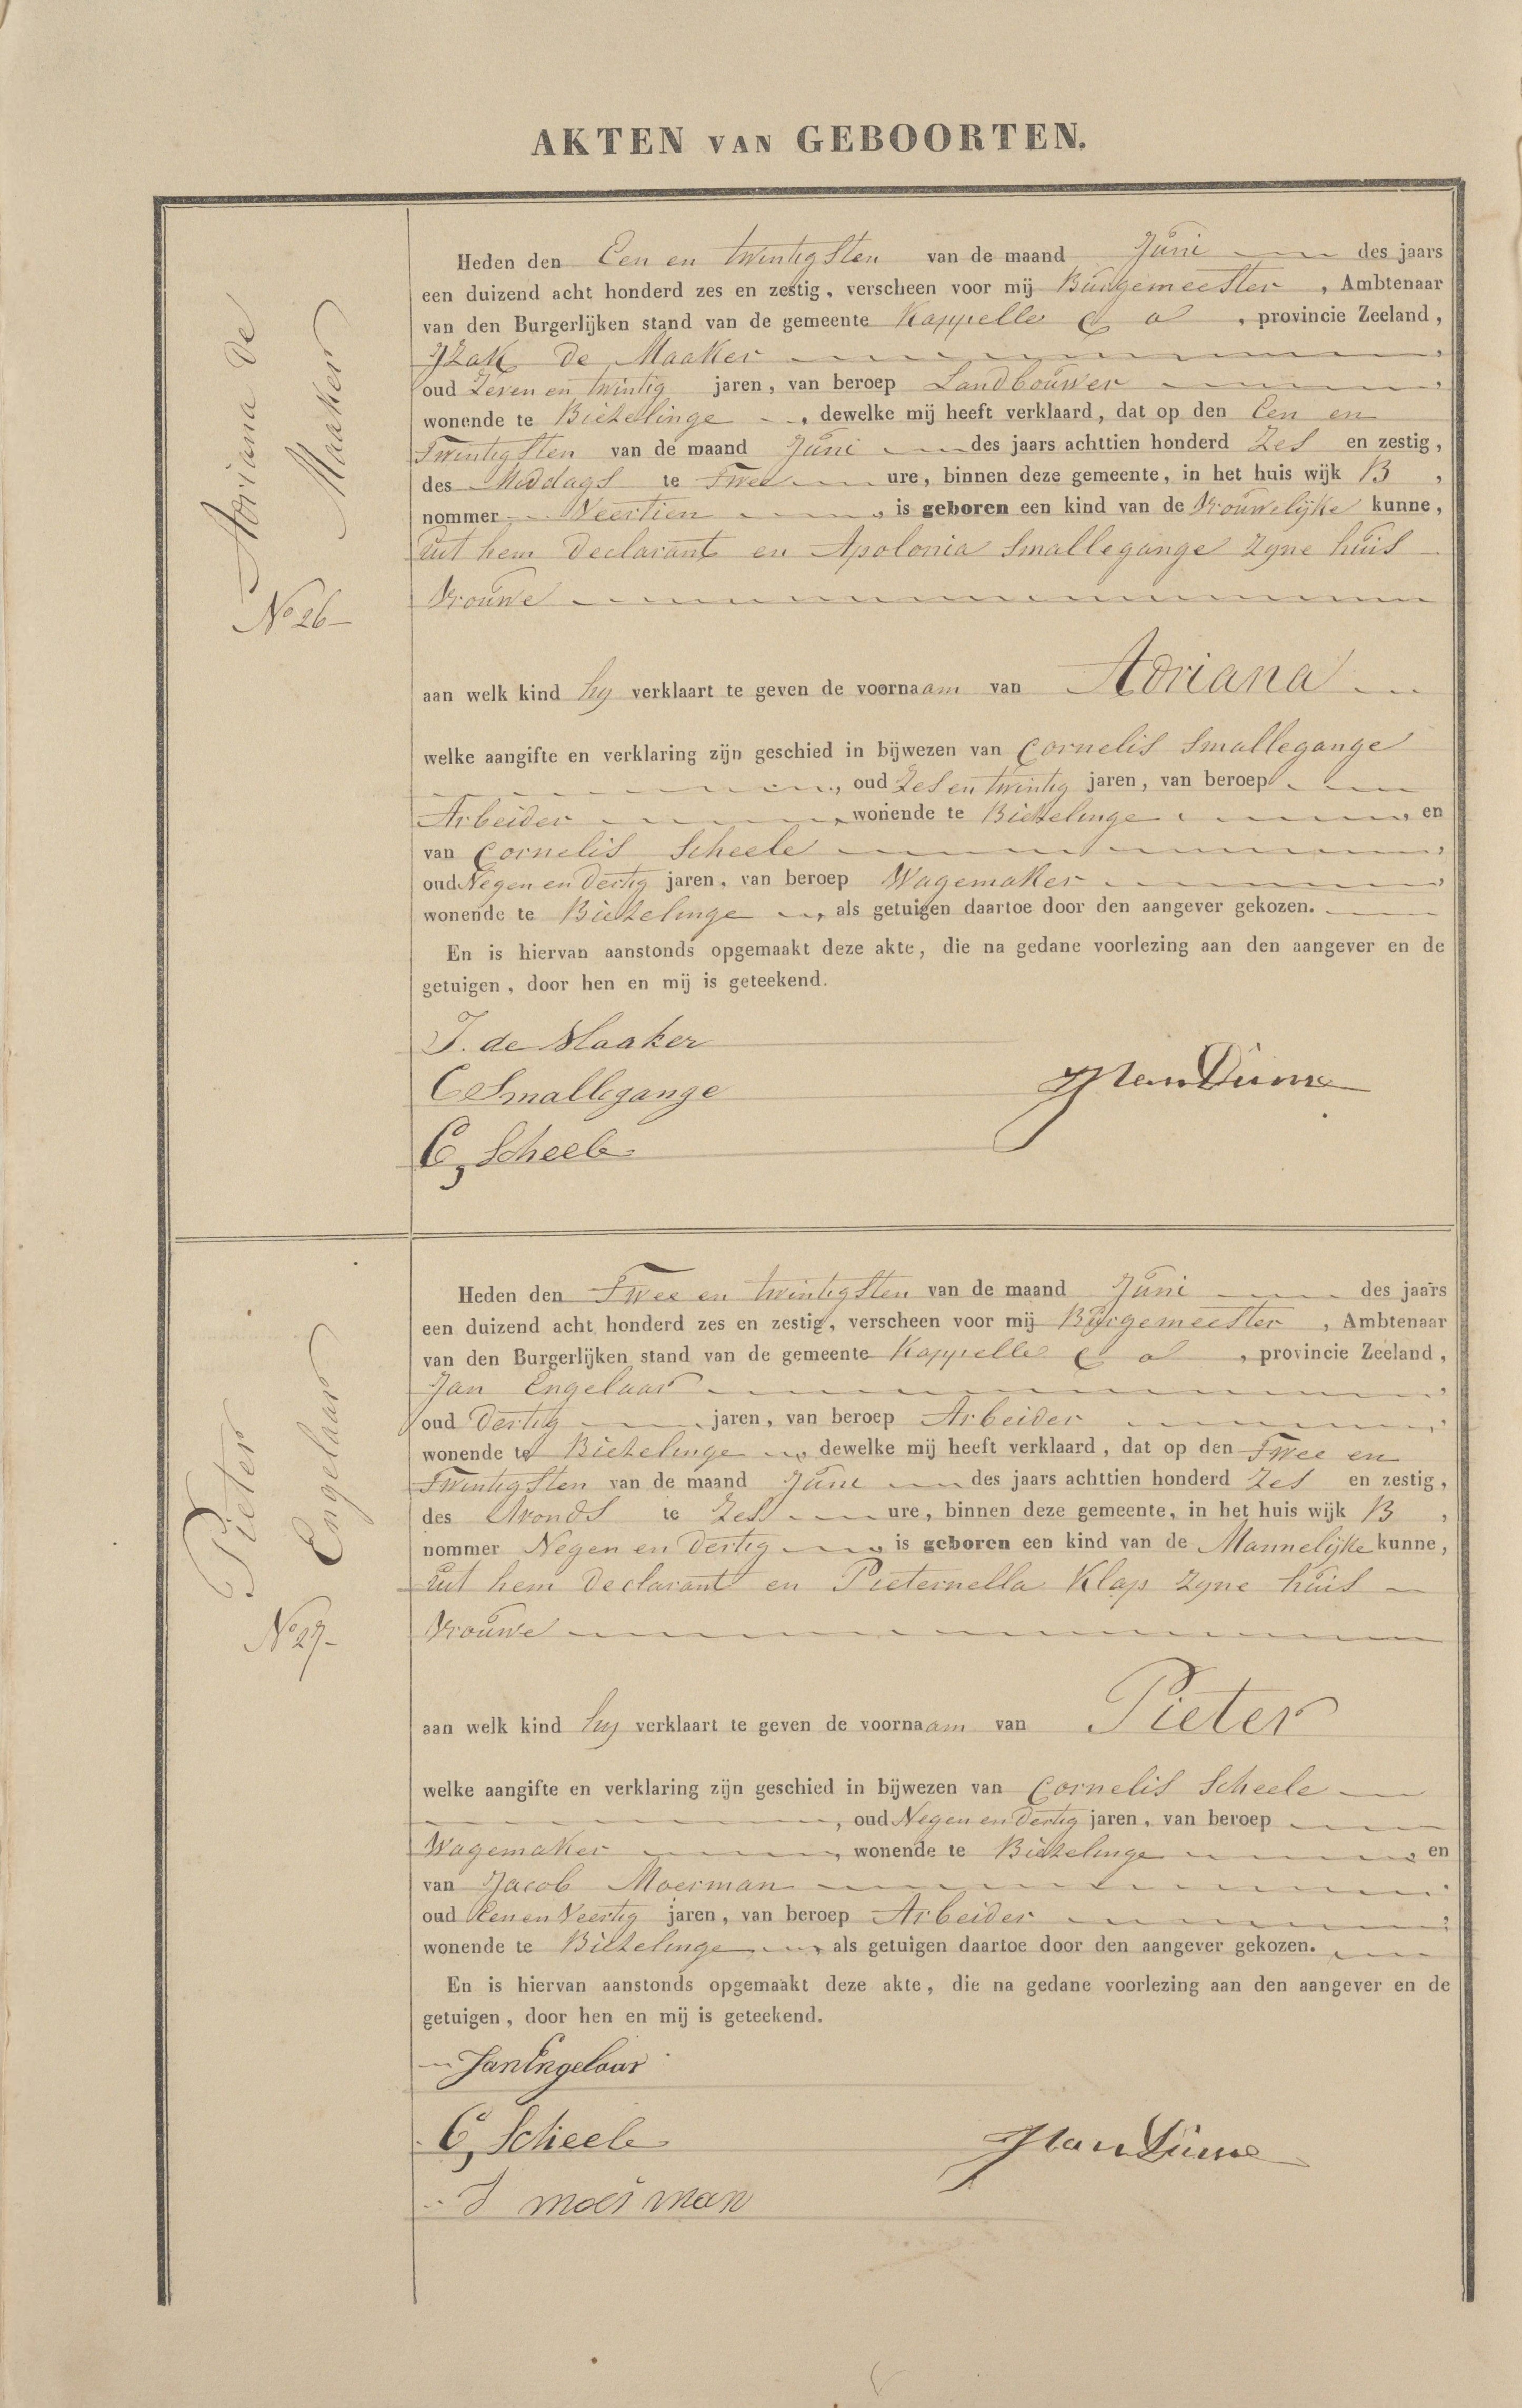 AKTEN VAN GEBOORTEN.
Adriana de
Maaker
No 26
Heden den Een en twintigsten van de maand Juni des jaars
een duizend acht honderd zes en zestig, verscheen voor mij Burgemeester, Ambtenaar
van den Burgerlijken stand van de gemeente Kappelle c a, provincie Zeeland,
Izak de Maaker
oud Zeven en twintig jaren, van beroep Landbouwer
wonende te Biezelinge, dewelke mij heeft verklaard, dat op den Een en
Twintigsten van de maand Juni des jaars achttien honderd Zes en zestig,
des Middags te Twee ure, binnen deze gemeente, in het huis wijk B,
nommer Veertien, is geboren een kind van de Vrouwelijke kunne,
uit hem Declarant en Apolonia Smallegange zyne huis
vrouwe
aan welk kind hy verklaart te geven de voornaam van Adriana
welke aangifte en verklaring zijn geschied in bijwezen van Cornelis Smallegange
, oud Zes en twintig jaren, van beroep
Arbeider, wonende te Biezelinge, en
van Cornelis Scheele
oud Negen en Dertig jaren, van beroep Wagemaker
wonende te Biezelinge, als getuigen daartoe door den aangever gekozen.
En is hiervan aanstonds opgemaakt deze akte, die na gedane voorlezing aan den aangever en de
getuigen, door hen en mij is geteekend.
J. de Maaker
C Smallegange
C, Scheele
Pieter
Engelaar
No 27
Heden den Twee en twintigsten van de maand Juni des jaars
een duizend acht honderd zes en zestig, verscheen voor mij Burgemeester, Ambtenaar
van den Burgerlijken stand van de gemeente Kappelle c a, provincie Zeeland,
Jan Engelaar
oud Dertig jaren, van beroep Arbeider
wonende te Biezelinge, dewelke mij heeft verklaard, dat op den Twee en
Twintigsten van de maand Juni des jaars achttien honderd Zes en zestig,
des Avonds te Zes ure, binnen deze gemeente, in het huis wijk B,
nommer Negen en Dertig, is geboren een kind van de Mannelijke kunne,
uit hem Declarant en Pieternella Klap zyne huis
vrouwe
aan welk kind hy verklaart te geven de voornaam van Pieter
welke aangifte en verklaring zijn geschied in bijwezen van Cornelis Scheele
, oud Negen en Dertig jaren, van beroep
Wagemaker, wonende te Biezelinge, en
van Jacob Moerman
oud Een en Veertig jaren, van beroep Arbeider
wonende te Biezelinge, als getuigen daartoe door den aangever gekozen.
En is hiervan aanstonds opgemaakt deze akte, die na gedane voorlezing aan den aangever en de
getuigen, door hen en mij is geteekend.
Jan Engelaar
C, Scheele
J moerman